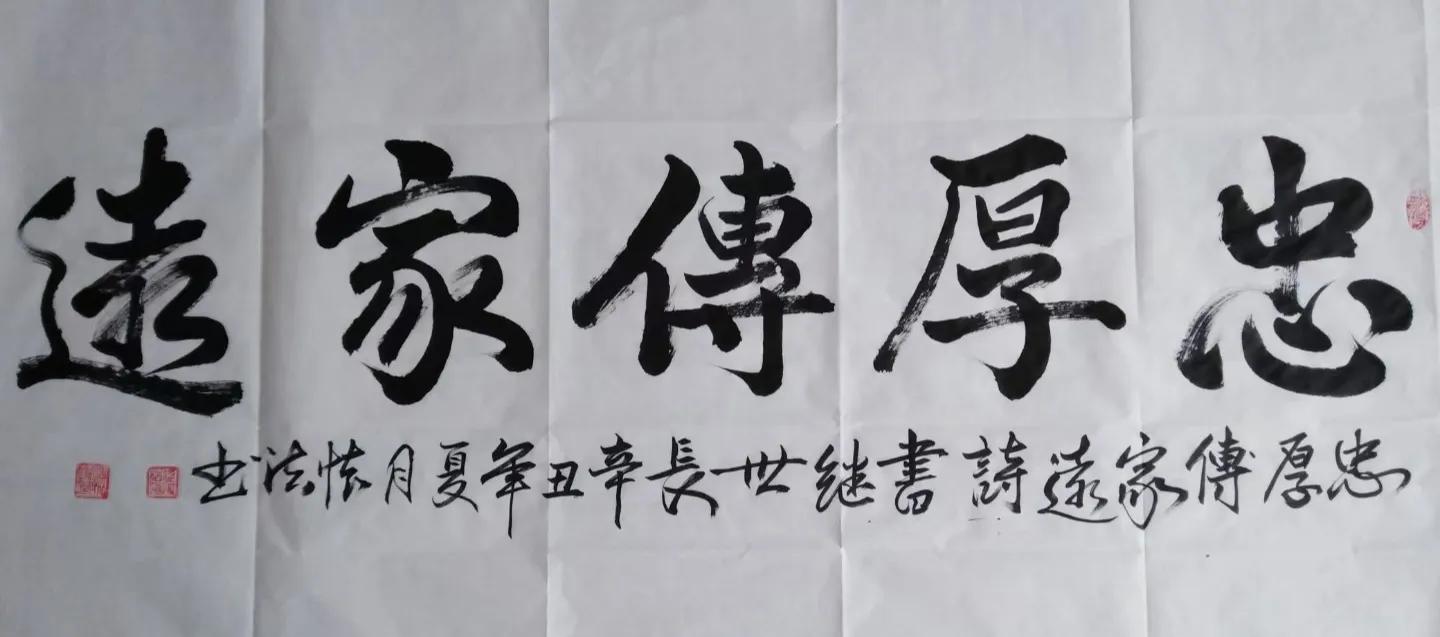 忠厚傳家遠
忠厚傳家遠詩書継世長辛丑年夏月懷法书